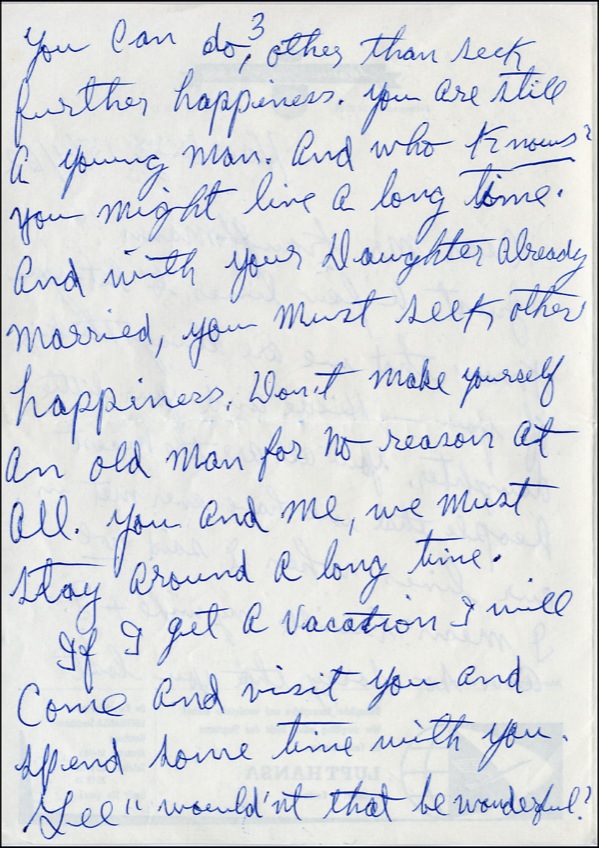 3
You Can do, other than seek
further happiness. you are still
A young man. And who Knows?
you might live A long time.
And with your Daughter Already
married, you must seek other
happiness. Don't make yourself
An old man for no reason At
All. you and me, we must
stay Around A long time.
If I get A Vacation I will
Come And visit you and
spend some time with you.
Gee" would'nt that be wonderful?
LUFTHANSA